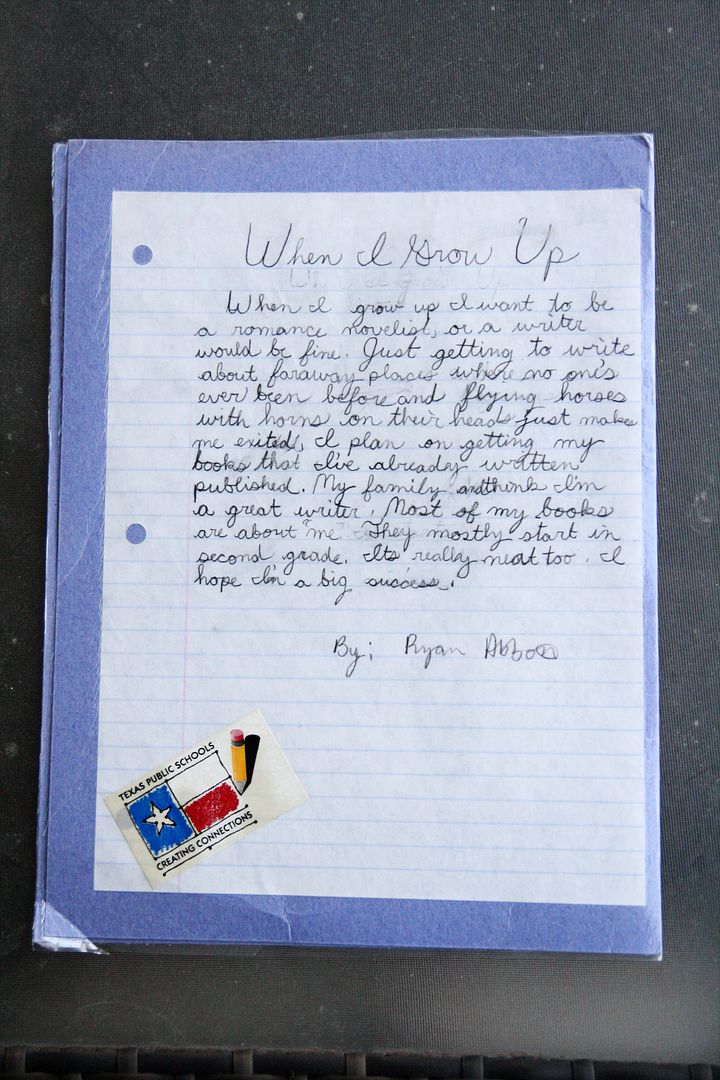 When I Grow Up
When I grow up I want to be
a romance novelist, or a writer
would be fine. Just getting to write
about faraway places where no one's
ever been before and flying horses
with horns on their heads just makes
me exited, I plan on getting my
books that I've already written
published. My family and think I'm
a great writer. Most of my books
are about me. They mostly start in
second grade. Its really neat too. I
hope I'm a big success.
By; Ryan
TEXAS PUBLIC SCHOOLS
CREATING CONNECTIONS